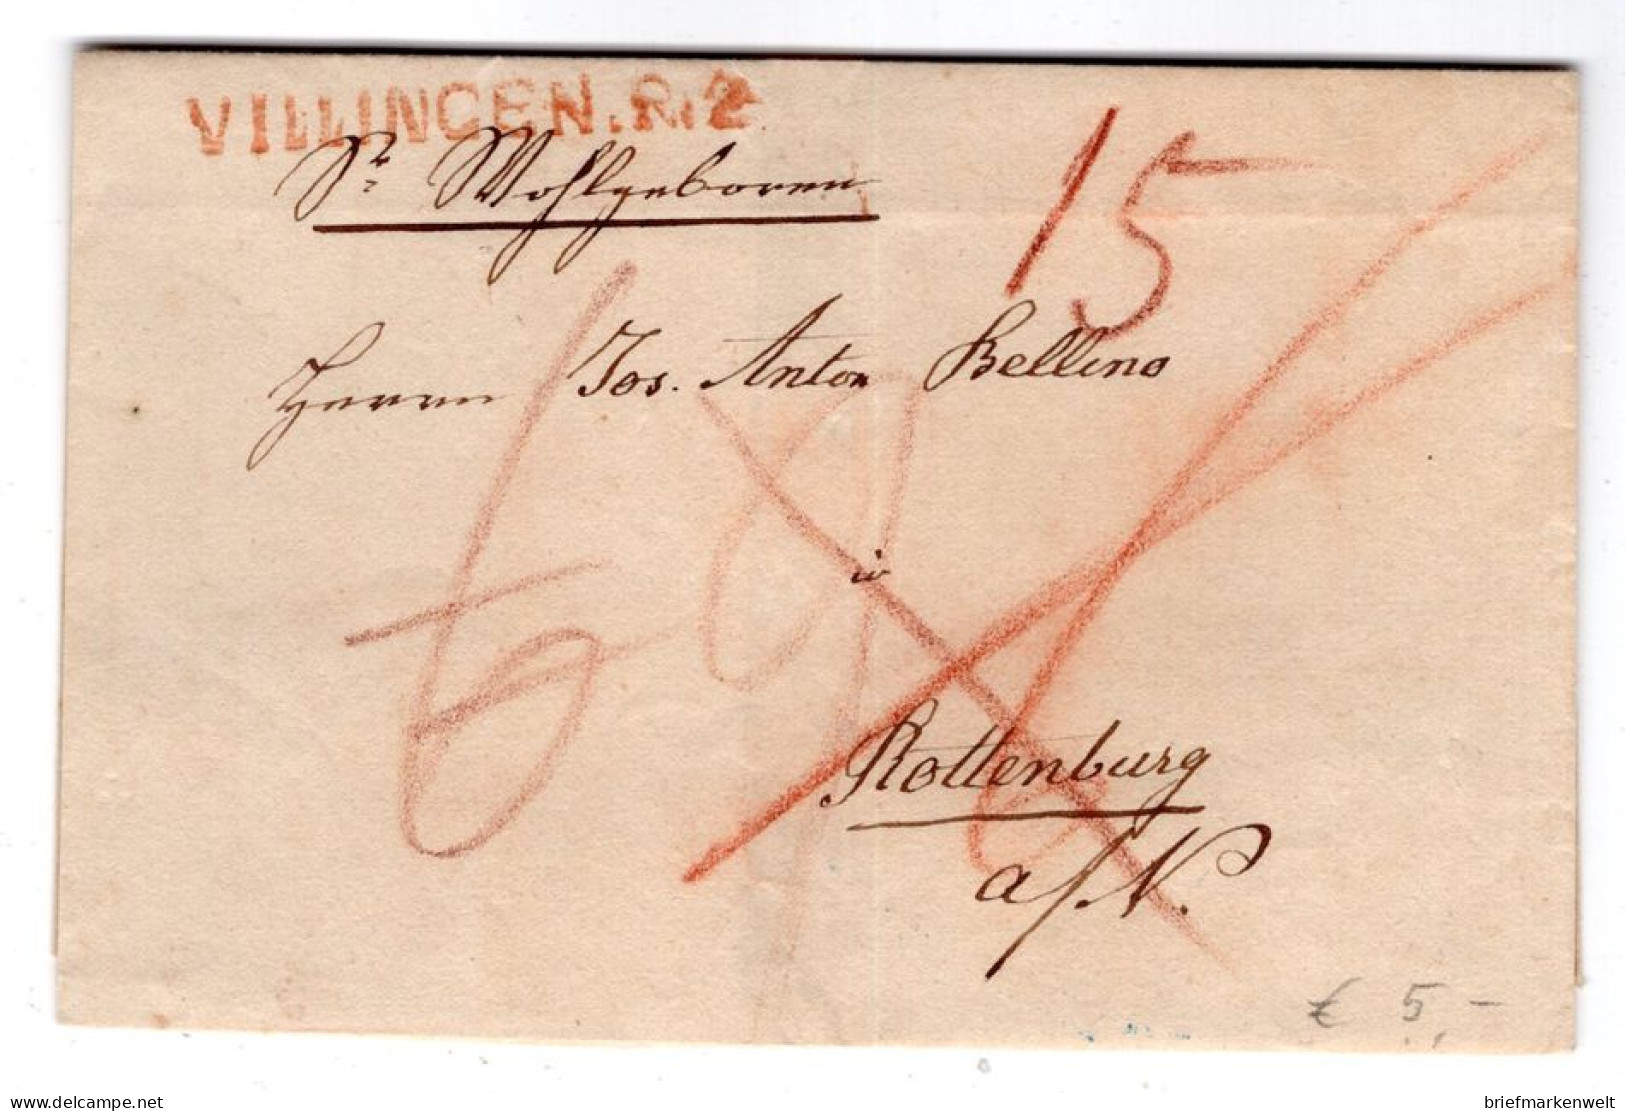 VILLINGEN.R.2
Sr Wohlgeboren
15
Herrn Jos. Anton Bellino
in
Rottenburg
a/N.
€ 5,-
briefmarkenwelt